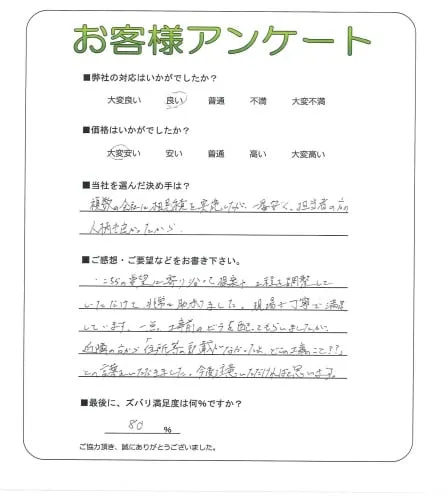 お客様アンケート
■弊社の対応はいかがでしたか?
大変良い 良い 普通 不満 大変不満
■価格はいかがでしたか?
大変安い 安い 普通 高い 大変高い
■当社を選んだ決め手は?
複数の会社に相見積を実施したが、一番安く、担当者の方の
人柄も良かったから
■ご感想・ご要望などをお書き下さい。
こちらの要望に寄りそって提案や工程を調整して
いただけて非常に助かりました。現場も丁寧で満足
しています。一点、工事前のビラを配ってもらいましたが、
近隣の方から「住所等記載がなかったよ、どこの工事のこと??」
との言葉をいただきました。今後注意いただければと思います。
■最後に、ズバリ満足度は何%ですか?
80 %
ご協力頂き、誠にありがとうございました。